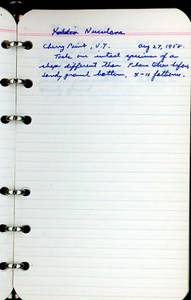 Yoldia Nuculana
Cherry Point, V.I. Aug 27, 1950.
Took one intact specimen of a
shape different than I have taken before
sandy gravel bottom, 8-10 fathoms.